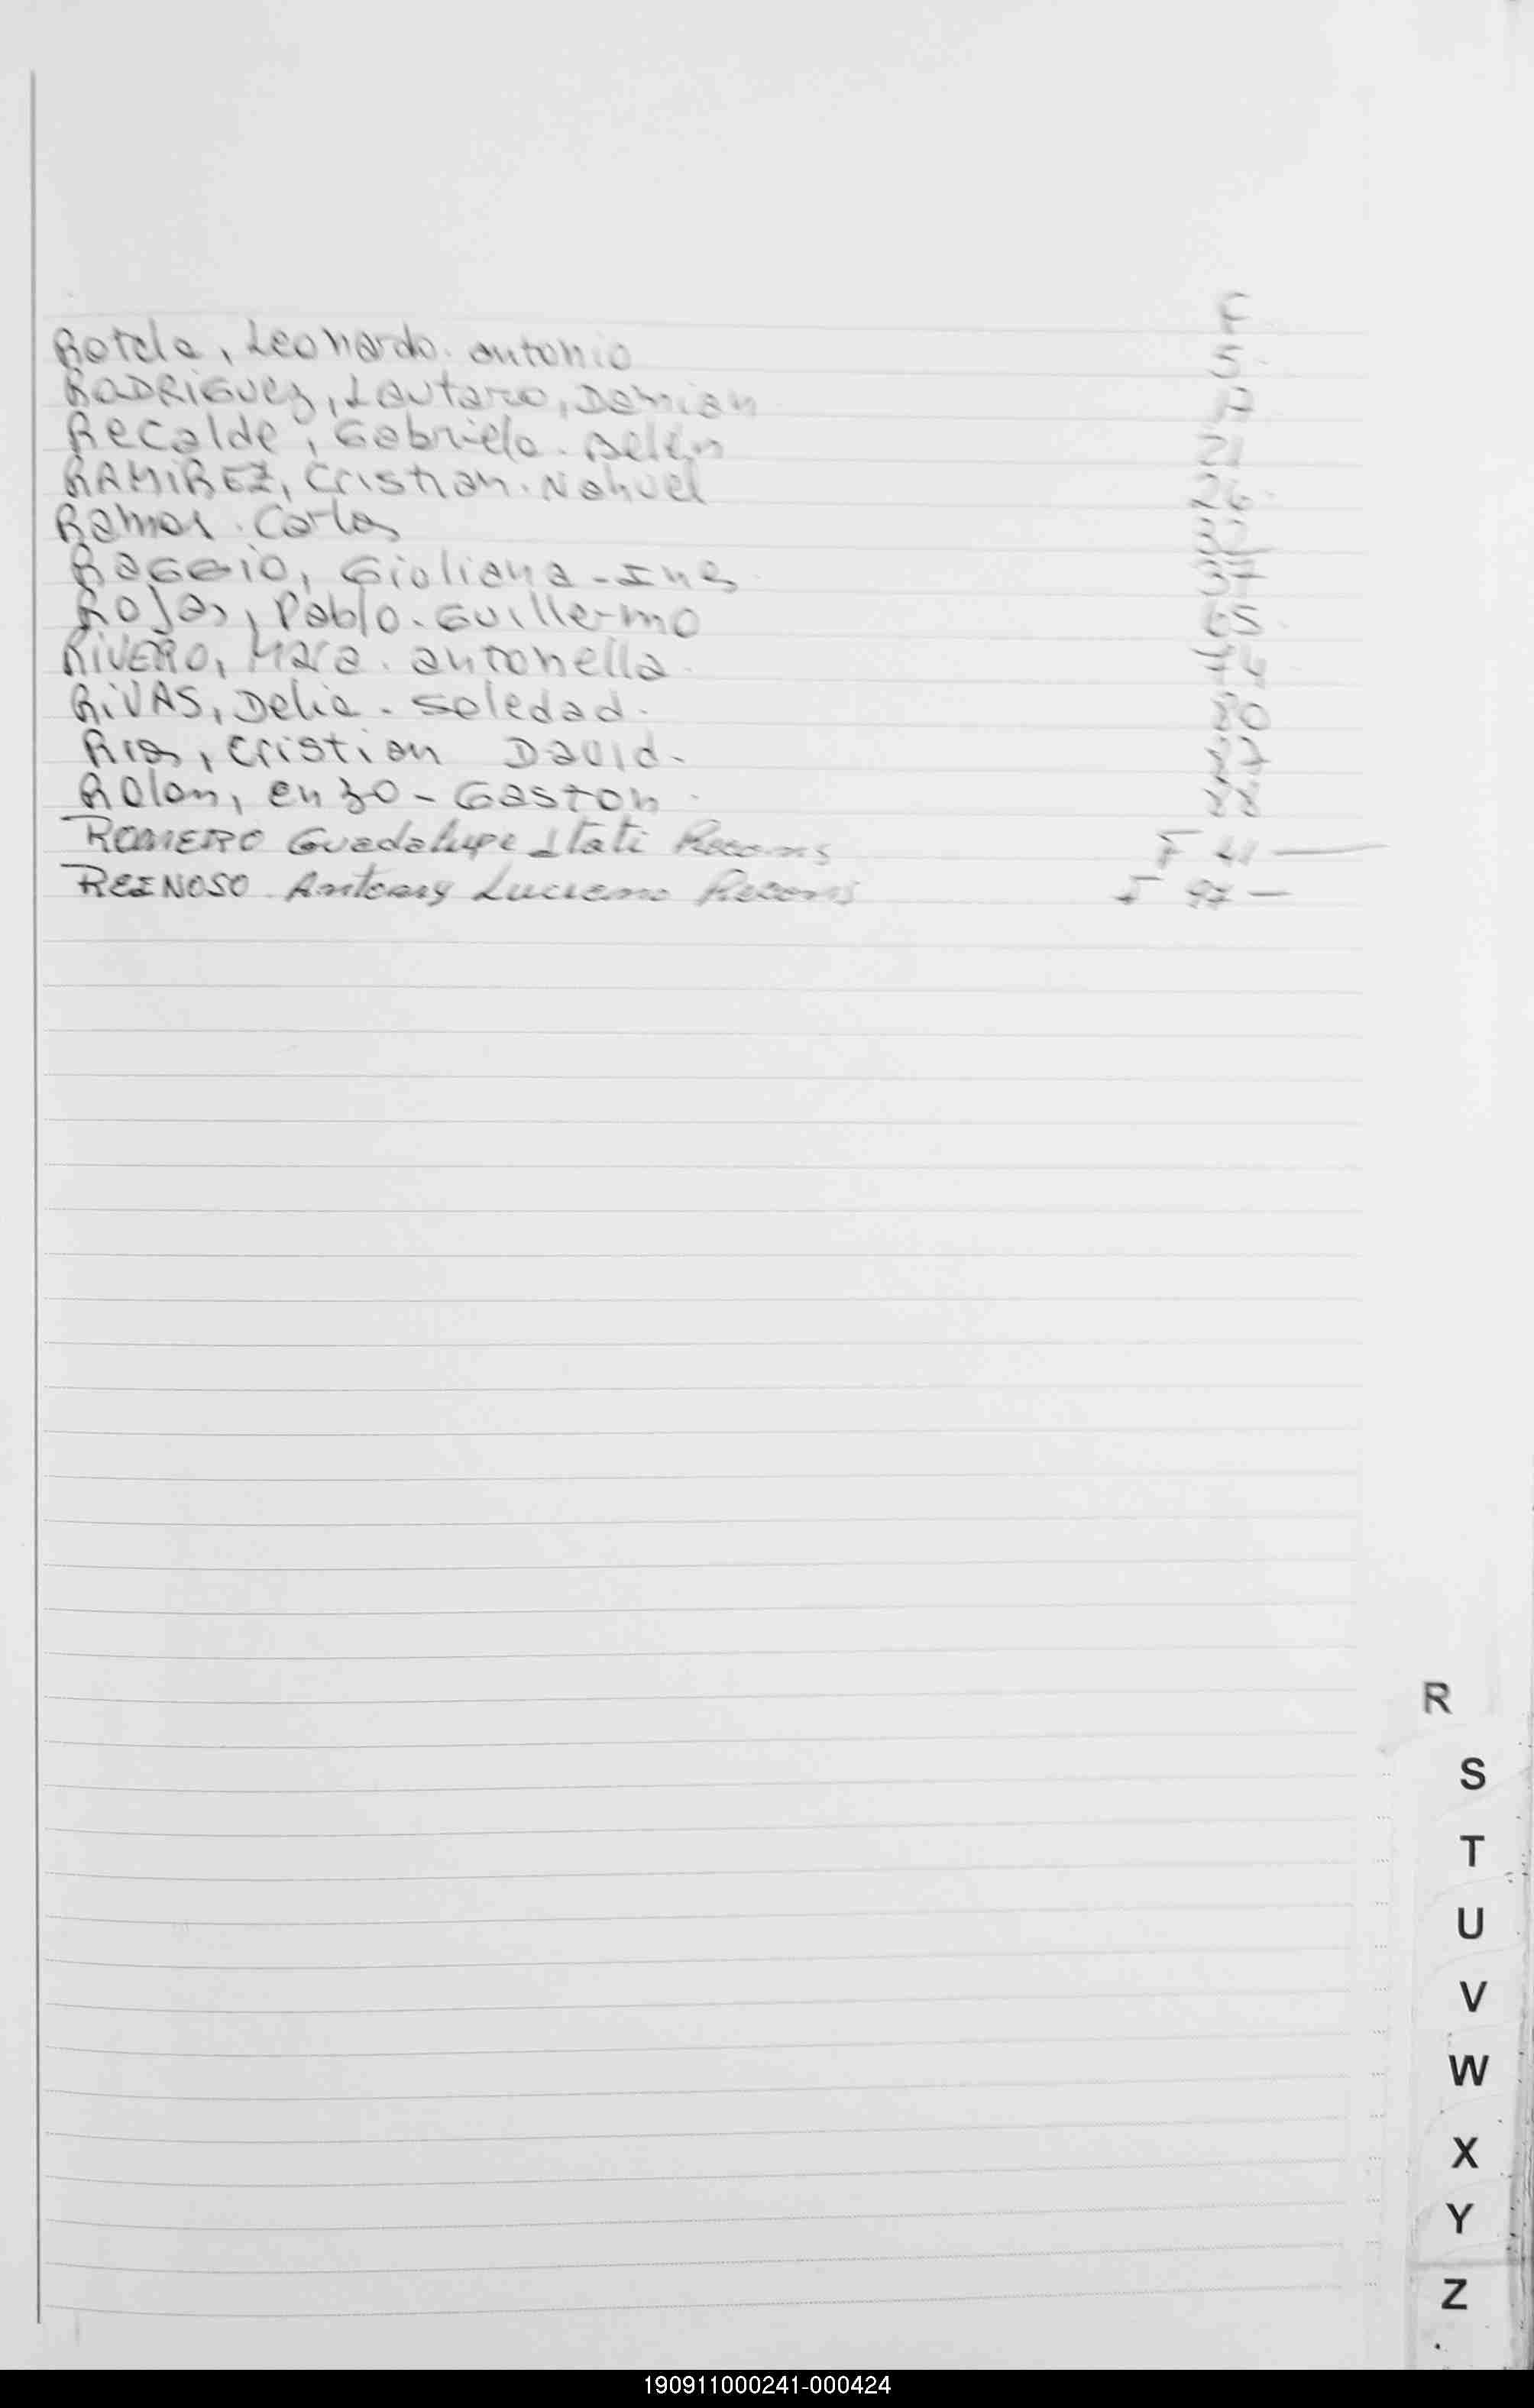 F
Rotela, Leonardo. antonio 5-
RODRIGUEZ, Lautaro, Damian 17
Recalde, Gabriela. Belén 21
RAMIREZ, Cristian. Nahuel 26-
Ramos. Carlos 32
RaGGio, Giuliana-Ines 37
Rojas, Pablo. Guillermo 65-
RIVERO, Mara. antonella 74-
RIVAS, Delia. Soledad. 80
Rios, Cristian David-
Rolon, enzo-Gaston 88
ROMERO Guadalupe Itati Recons F 41 —
REINOSO Antony Luciano Recons F 97 —
R
S
T
U
V
W
X
Y
Z
190911000241-000424